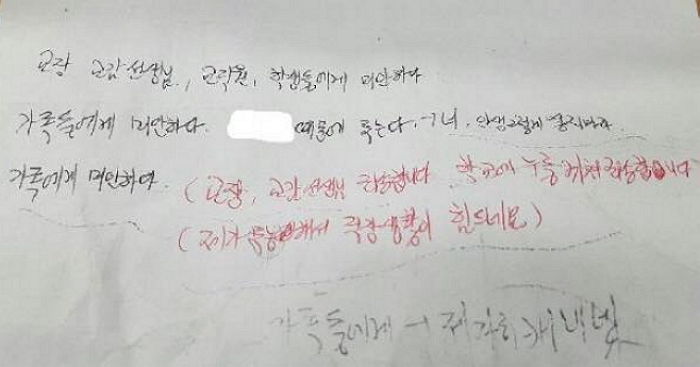 교장 교감선생님, 교직원, 학생들에게 미안하다
가족들에게 미안하다. 때문에 죽는다. 너, 인생그렇게 살지마라.
가족에게 미안하다.
(교장, 교감선생님 죄송합니다 학교에 누를 끼쳐 죄송합니다
(제가 무능해서 직장생활이 힘드네요)
가족들에게 →